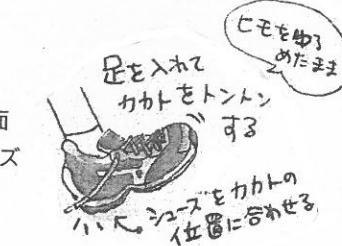 ヒモをゆる
めたまま
足を入れて
カカトをトントン
する
面
ズ
シューズをカカトの
位置に合わせる